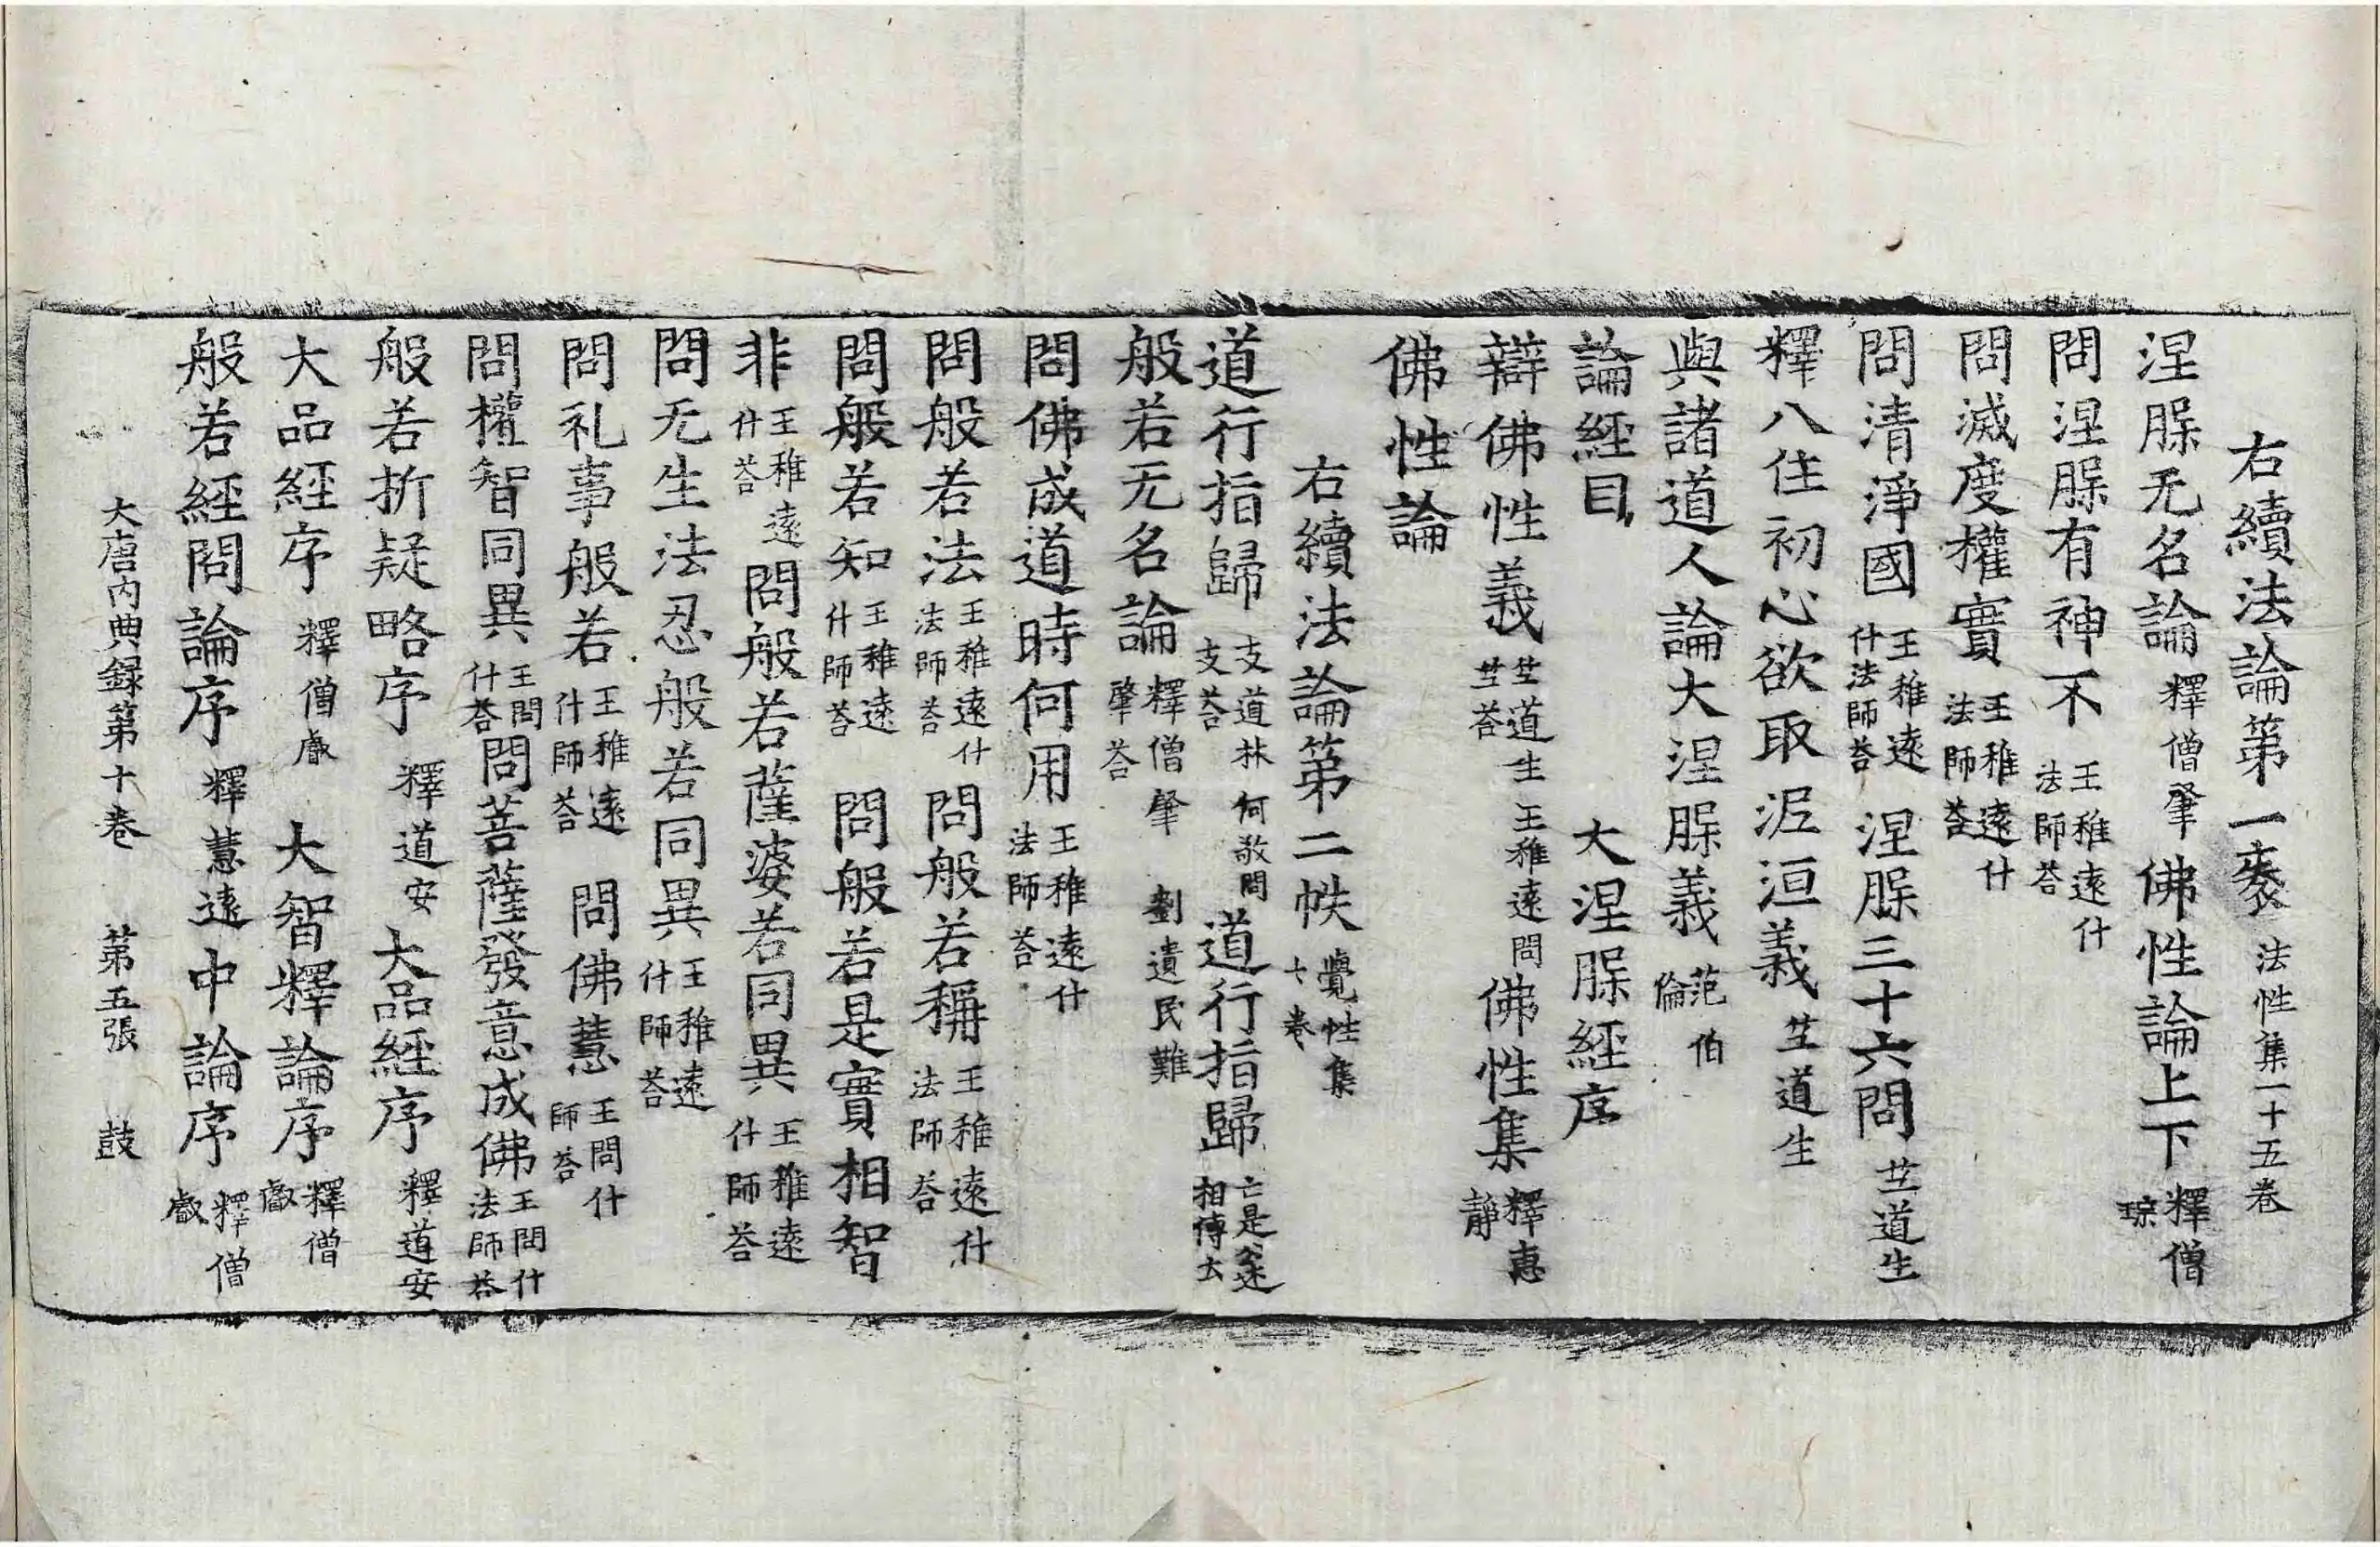 右續法論第一袠法性集一十五卷
涅脲无名論釋僧肇佛性論上下釋僧琮
問涅脲有神不王稚遠什法師荅
問滅度權實王稚遠什法師荅
問清淨國王稚遠什法師荅涅脲三十六問竺道生
釋八住初心欲取泥洹義竺道生
與諸道人論大涅脲義范伯倫
論經目大涅脲經序
辯佛性義竺道生王稚遠問竺荅佛性集釋惠靜
佛性論
右續法論第二帙覺性集七卷
道行指歸支道林何敬問支荅道行指歸亡是公述相傳去
般若无名論釋僧肇劉遺民難肇荅
問佛成道時何用王稚遠什法師荅
問般若法王稚遠什法師荅問般若稱王稚遠什法師荅
問般若知王稚遠什師荅問般若是實相智
非王稚遠什荅問般若薩婆若同異王稚遠什師荅
問无生法忍般若同異王稚遠什師荅
問礼事般若王稚遠什師荅問佛慧王問什師荅
問權智同異王問什荅問菩薩發意成佛王問什法師荅
般若折疑略序釋道安大品經序釋道安
大品經序釋僧叡大智釋論序釋僧叡
般若經問論序釋慧遠中論序釋僧叡
大唐内典録第十卷第五張鼓